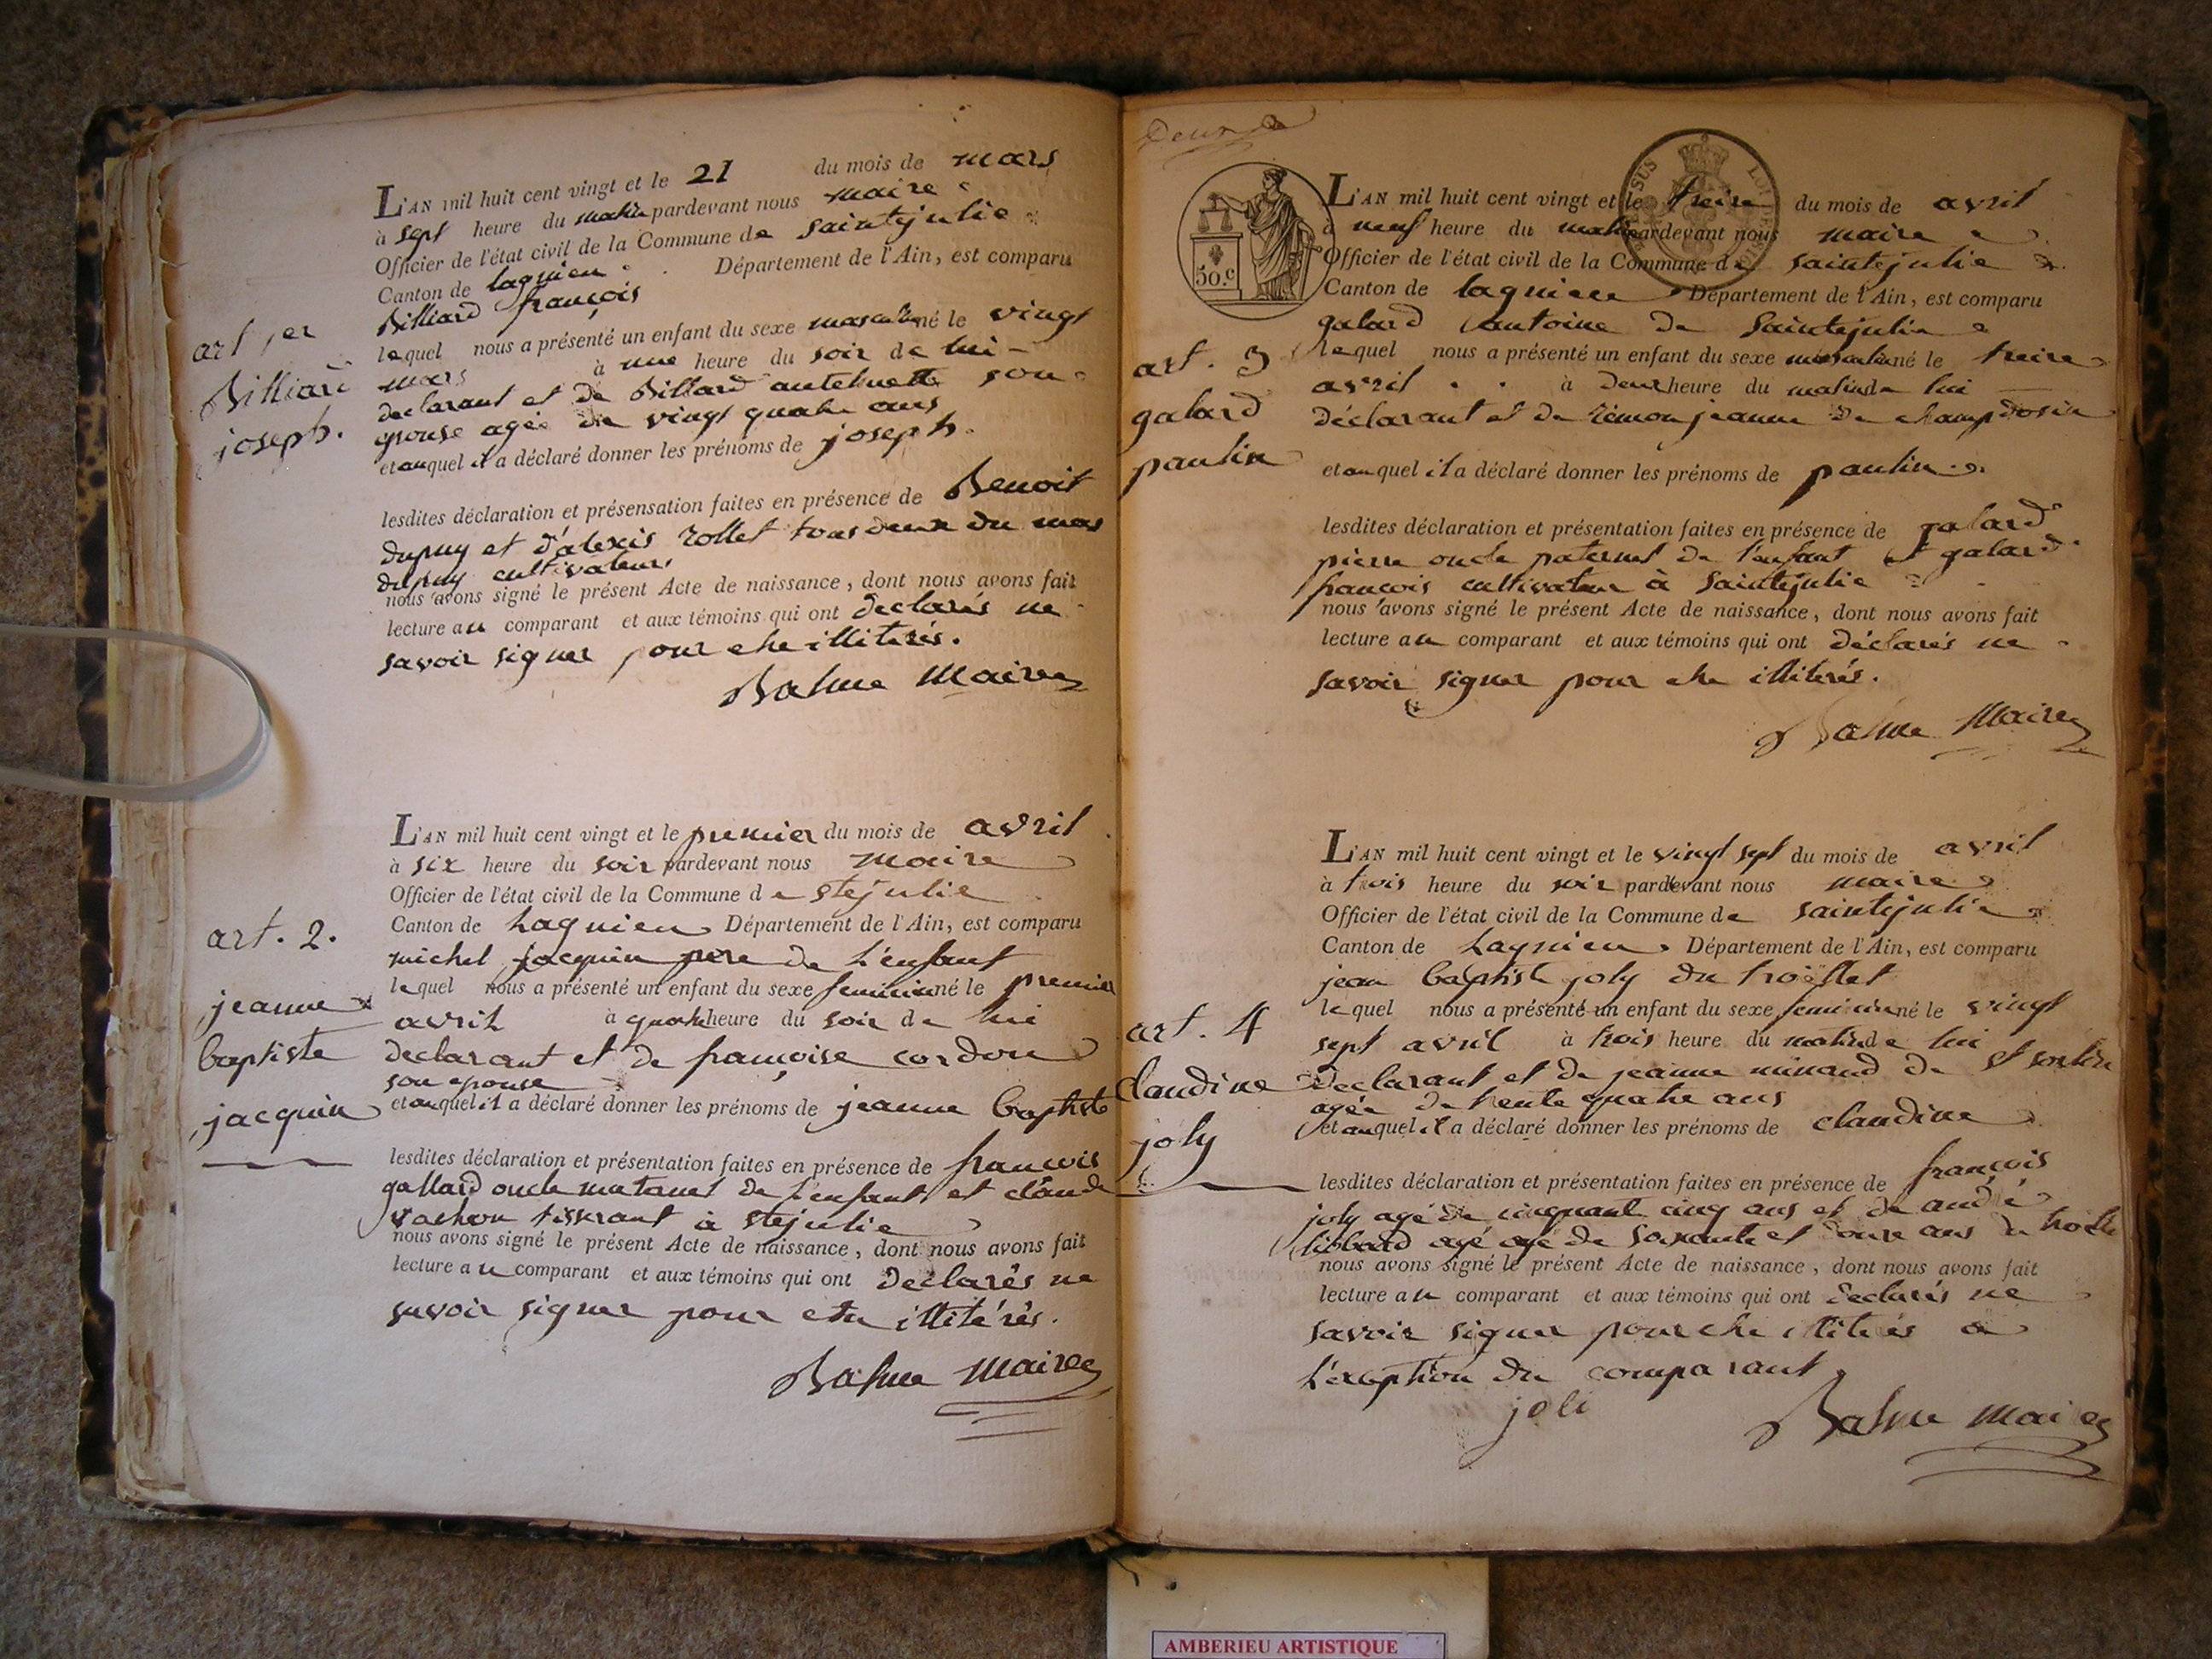 L'AN mil huit cent vingt et le 21 du mois de mars
à sept heure du matin pardevant nous maire
Officier de l'état civil de la Commune de saintejulie
Canton de lagnieu Département de l'Ain, est comparu
Billiard françois
art 1er
Billiard
joseph.
lequel nous a présenté un enfant du sexe masculin né le vingt
mars à une heure du soir de lui
declarant et de Billiard antelmette son
epouse agée de vingt quatre ans
et auquel il a déclaré donner les prénoms de joseph.
lesdites déclaration et présensation faites en présence de Benoit
dupuy et d'alexis rollet tous deux du mas
dupuy cultivateurs
nous avons signé le présent Acte de naissance, dont nous avons fait
lecture au comparant et aux témoins qui ont declarés ne
savoir signer pour etre illiterés.
Balme Maire
L'AN mil huit cent vingt et le premier du mois de avril
à six heure du soir pardevant nous maire
Officier de l'état civil de la Commune de stejulie
art. 2.
jeanne
baptiste
jacquin
Canton de Lagnieu Département de l'Ain, est comparu
michel jacquin père de l'enfant
lequel nous a présenté un enfant du sexe feminin né le premier
avril à quatre heure du soir de lui
declarant et de françoise cordon
son epouse
et auquel il a déclaré donner les prénoms de jeanne baptiste
lesdites déclaration et présentation faites en présence de françois
gallard oncle maternel de l'enfant et claude
vachon tisserant à stejulie
nous avons signé le présent Acte de naissance, dont nous avons fait
lecture au comparant et aux témoins qui ont declarés ne
savoir signer pour etre illitérés.
Balme Maire
Deux
50.c
L'AN mil huit cent vingt et le treize du mois de avril
à neuf heure du matin pardevant nous maire
Officier de l'état civil de la Commune de saintejulie
Canton de lagnieu Département de l'Ain, est comparu
galard antoine de Saintejulie
art. 3
galard
paulin
lequel nous a présenté un enfant du sexe masculin né le treize
avril à deux heure du matin de lui
déclarant et de rémon jeanne de
et auquel il a déclaré donner les prénoms de paulin.
lesdites déclaration et présentation faites en présence de galard
pierre oncle paternel de l'enfant et galard
françois cultivateur à Saintejulie
nous avons signé le présent Acte de naissance, dont nous avons fait
lecture au comparant et aux témoins qui ont déclarés ne
savoir signer pour etre illiterés.
Balme Maire
L'AN mil huit cent vingt et le vingt sept du mois de avril
à trois heure du soir pardevant nous maire
Officier de l'état civil de la Commune de saintejulie
Canton de Lagnieu Département de l'Ain, est comparu
jean baptist joly du
art. 4
claudine
joly
lequel nous a présenté un enfant du sexe feminin né le vingt
sept avril à trois heure du matin de lui
declarant et de jeanne de
agée de trente quatre ans
et auquel il a déclaré donner les prénoms de claudine
lesdites déclaration et présentation faites en présence de françois
joly agé de cinquant cinq ans et de andré
agé agé de soixante et douze ans
nous avons signé le présent Acte de naissance, dont nous avons fait
lecture au comparant et aux témoins qui ont declarés ne
savoir signer pour etre illiterés a
l'exception du comparant
joli
Balme maire
AMBERIEU ARTISTIQUE